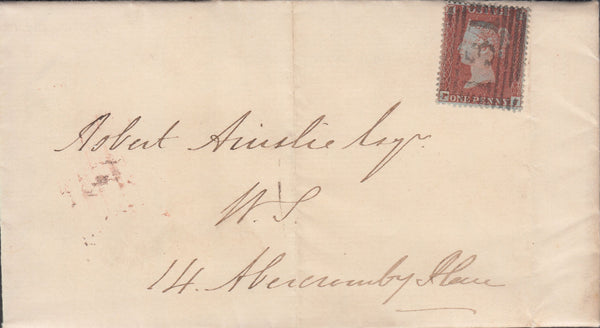 ONE PENNY
Robert Ainslie Esqr.
W. S.
14. Abercromby Place